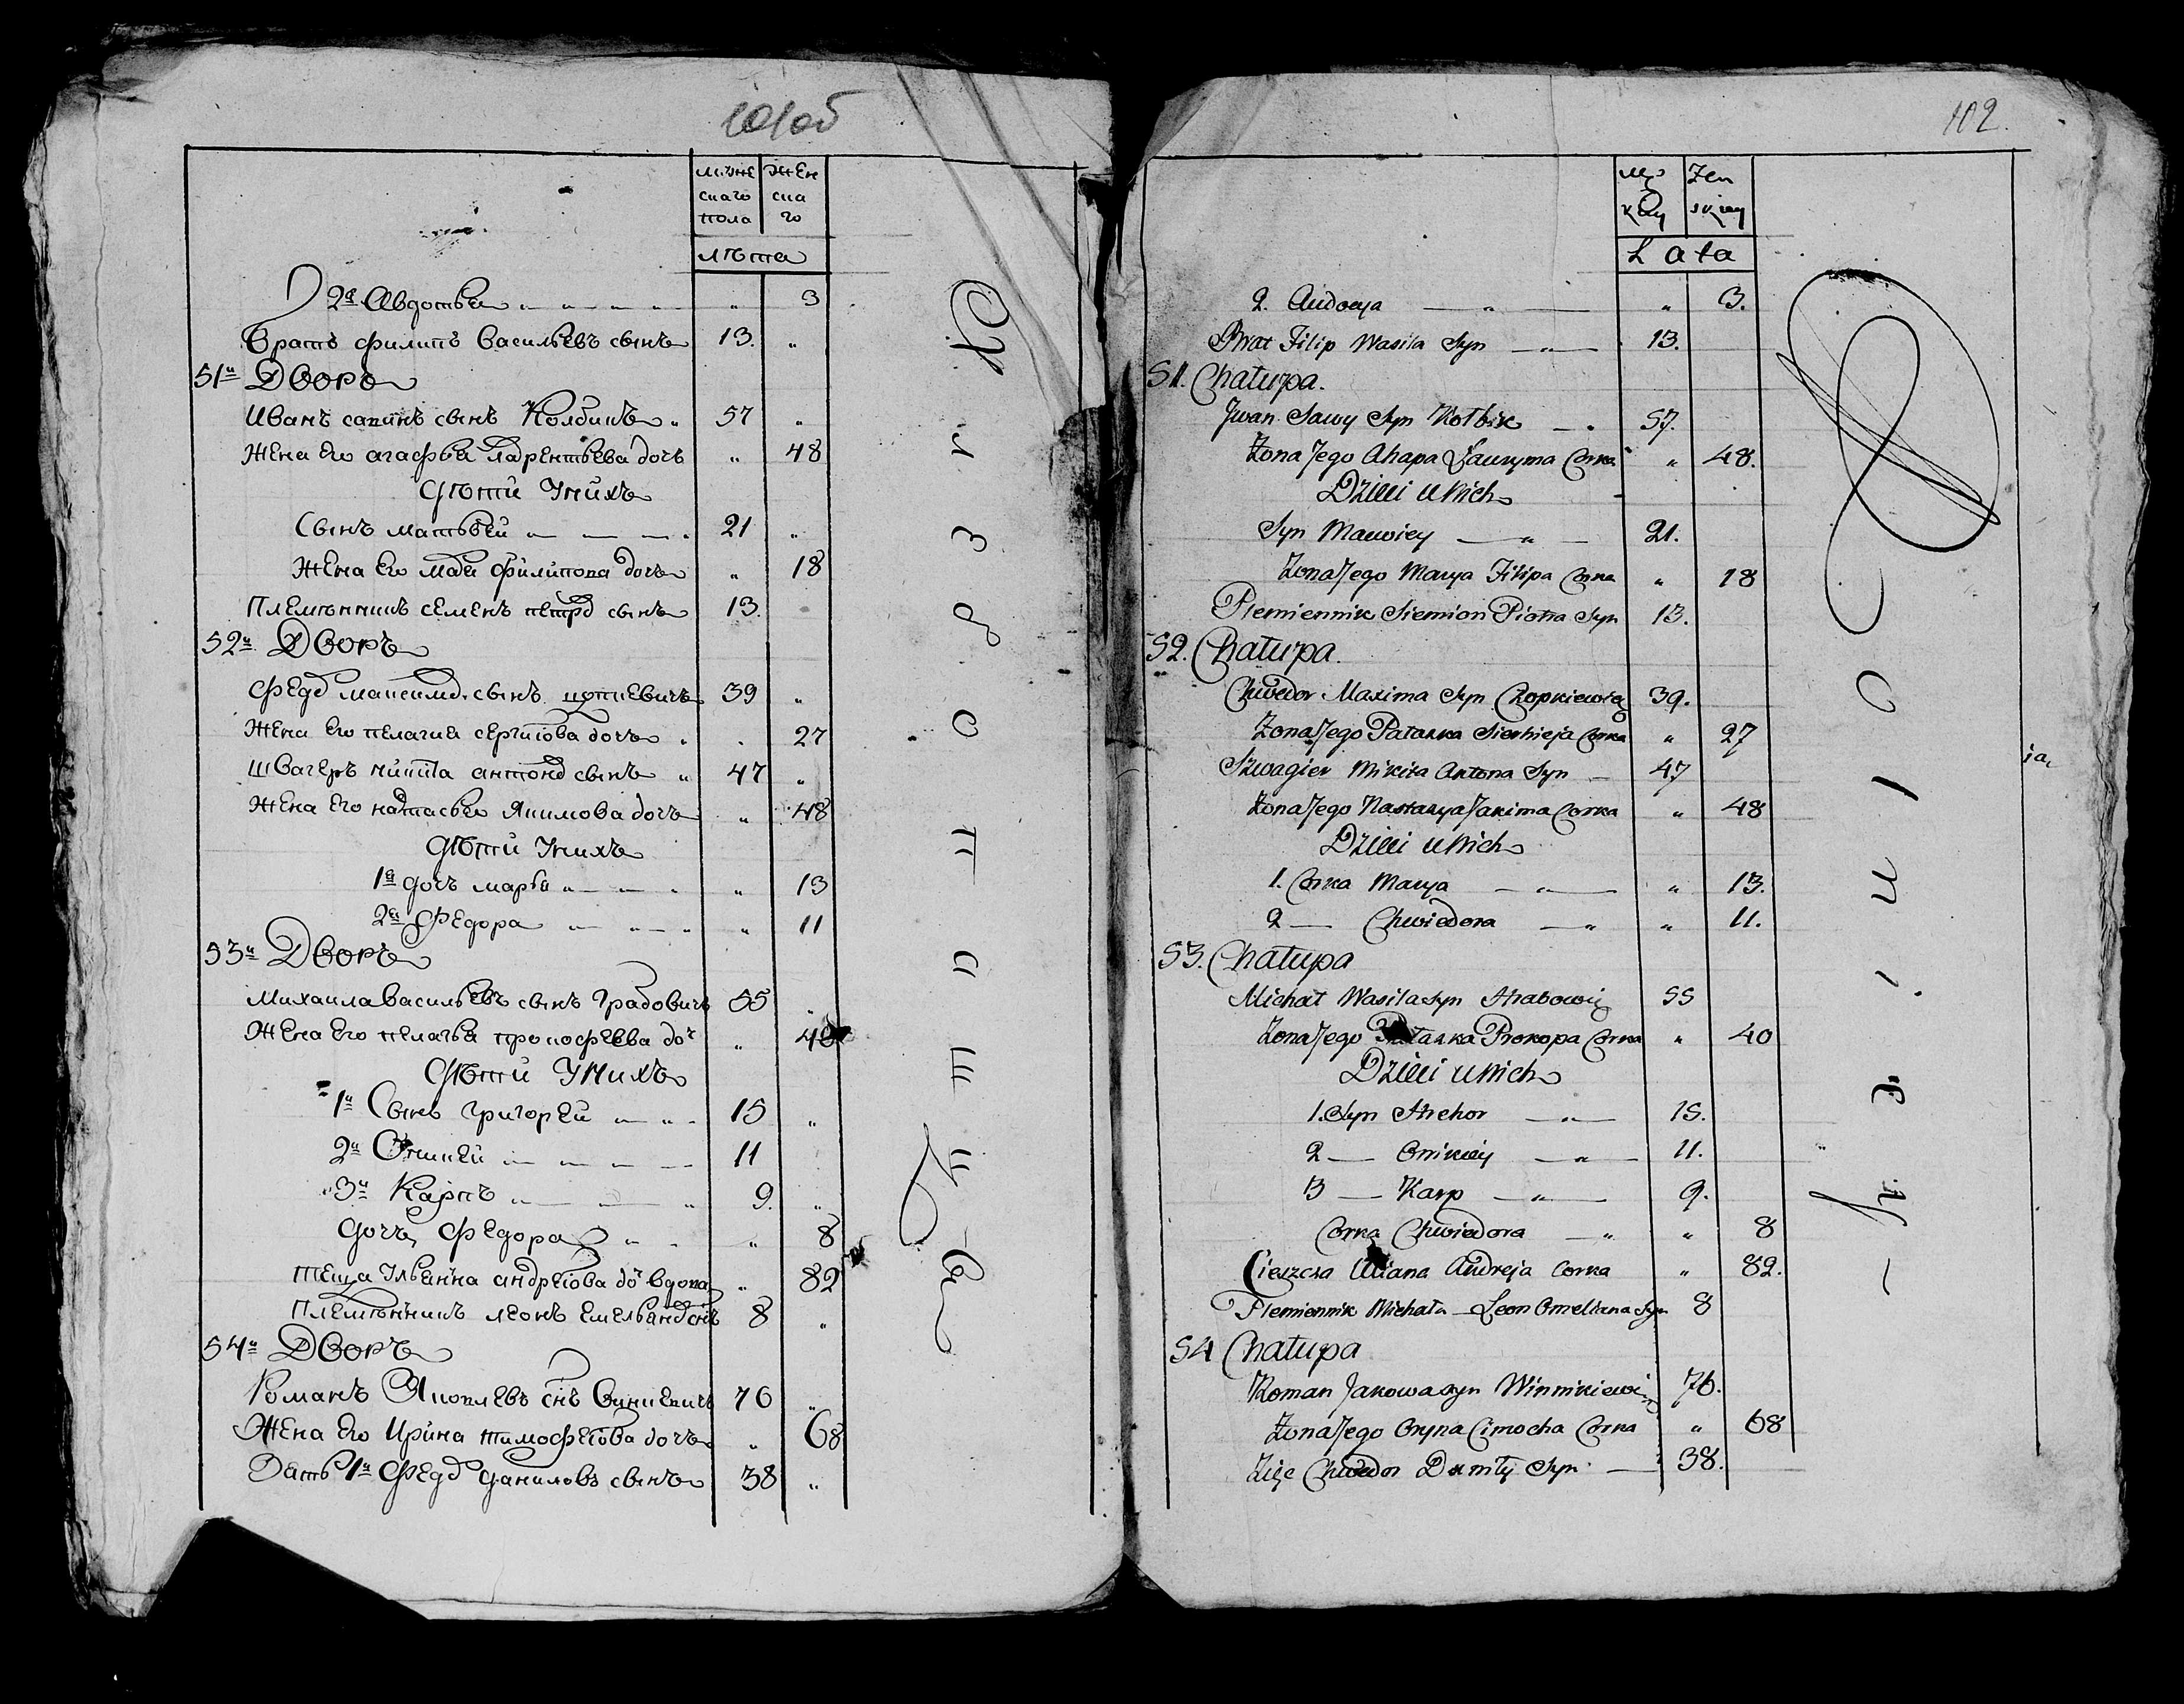 101об
муже
скаго
пола
жен
ска
го
лѣта
2я Авдотья 3
братъ филипъ васильевъ сынъ 13
51й Дворъ
Иванъ савинъ сынъ Колбикъ 57
Жена Его агафья лаврентьева дочь 48
Дѣти Унихъ
Сынъ матьвѣй 21
Жена Его марья филипова дочь 18
племянникъ семенъ петров сынъ 13
52й Дворъ
федор максимов сынъ 39
Жена Его пелагия сергѣева дочь 27
швагеръ никита антонов сынъ 47
Жена Его настасья Якимова дочь 48
Дѣти Унихъ
1я дочь марья 13
2я Федора 11
53й Дворъ
Михаила васильевъ сынъ Грабовичъ 55
Жена Его пелагья прокофьева доч 40
Дѣти Унихъ
1й Сынъ григорей 15
2й Оникей 11
3й Карпъ 9
дочь федора 8
теща Ульяна андрѣева до вдова 82
племянникъ леонъ емельянов снъ 8
54й Дворъ
Романъ Яковлевъ снъ Винникевичъ 76
Жена Его Ирина тимофѣева дочь 68
Зять 1й Федор даниловъ сынъ 38
102.
męz
kiey
Zen
skiey
Lata
2. Audocya 3.
Brat Filip Wasila Syn 13.
51. Chałupa.
Jwan Sawy Syn Kołbik 57.
Zona Jego Ahapa Ławryna Corka 48.
Dzieci u Nich
Syn Mawiey 21.
Zona Jego Marya Filipa Corka 18
Plemiennik Siemion Piotra Syn 13.
52. Chałupa.
Chwedor Maxima Syn Czopkiewicz 39.
Zona Jego Pałaska Sierhieja Corka 27
Szwagier Mikita Antona Syn 47
Zona Jego Nastazya Jakima Corka 48
Dzieci u Nich
1. Corka Marya 13.
2 Chwiedora 11.
53. Chałupa
Michał Wasila syn Hrabowicz 55
Zona Jego Pałaska Prokopa Corka 40
Dzieci u Nich
1. Syn Hrehor 15.
2 Onikiey 11.
3 Karp 9.
Corka Chwiedora 8
Cieszcza Uliana Andreja Corka 82.
Plemiennik Michała Leon Omeliana Syn 8
54 Chałupa
Roman Jakowa syn Winnikiewicz 76.
Zona Jego Oryna Cimocha Corka 68
Zięc Chwedor Daniły Syn 38.